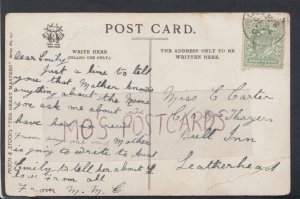 POST CARD.
WRITE HERE
(INLAND USE ONLY.)
THE ADDRESS ONLY TO BE
WRITTEN HERE.
Dear Emily
Just a line to tell
you that Mother knows
anything about the name
you ask me about
have no news
From any one and Mother
is going to write to Aunt
Emily to tell her about
love From all
From M. M. C
Miss E Carter
C/o Thayers
Bull Inn
Leatherhead
MPS POSTCARDS